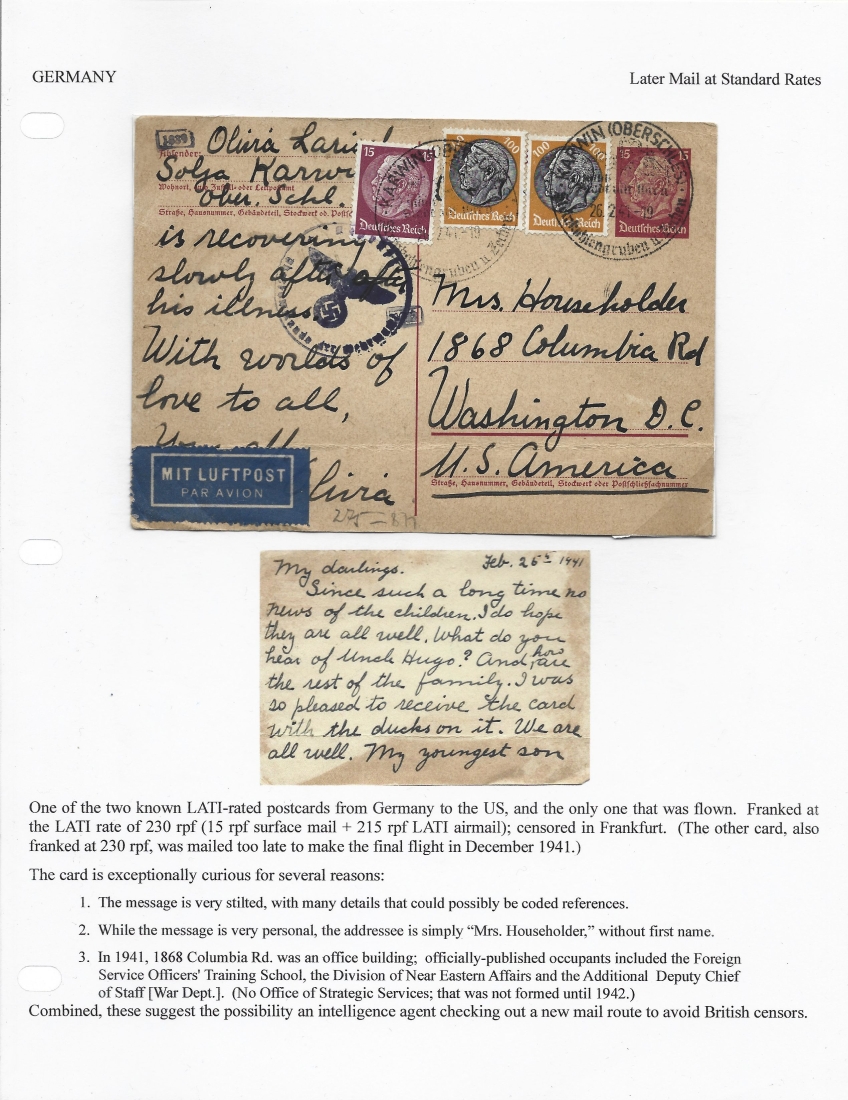 GERMANY
Later Mail at Standard Rates
1839
Absender:
Olivia
Solza Karwi
Wohnort, auch Zustell- oder Leitpostamt
Ober. Schl.
Straße, Hausnummer, Gebäudeteil, Stockwerk od. Postsch
is recovering
slowly after after
his illness.
With worlds of
love to all,
Olivia
MIT LUFTPOST
PAR AVION
15 15
Deutsches Reich
100
Deutsches Reich
100
Deutsches Reich
15 15
Deutsches Reich
KARWIN (OBERSCHLES)
Mrs. Householder
1868 Columbia Rd
Washington D.C.
U.S. America
Straße, Hausnummer, Gebäudeteil, Stockwerk oder Postschließfachnummer
My darlings. Feb. 25th 1941
Since such a long time no
news of the children. I do hope
they are all well. What do you
hear of Uncle Hugo? And how are
the rest of the family. I was
so pleased to receive the card
with the ducks on it. We are
all well. My youngest son
One of the two known LATI-rated postcards from Germany to the US, and the only one that was flown. Franked at
the LATI rate of 230 rpf (15 rpf surface mail + 215 rpf LATI airmail); censored in Frankfurt. (The other card, also
franked at 230 rpf, was mailed too late to make the final flight in December 1941.)
The card is exceptionally curious for several reasons:
1. The message is very stilted, with many details that could possibly be coded references.
2. While the message is very personal, the addressee is simply “Mrs. Householder,” without first name.
3. In 1941, 1868 Columbia Rd. was an office building; officially-published occupants included the Foreign
Service Officers' Training School, the Division of Near Eastern Affairs and the Additional Deputy Chief
of Staff [War Dept.]. (No Office of Strategic Services; that was not formed until 1942.)
Combined, these suggest the possibility an intelligence agent checking out a new mail route to avoid British censors.